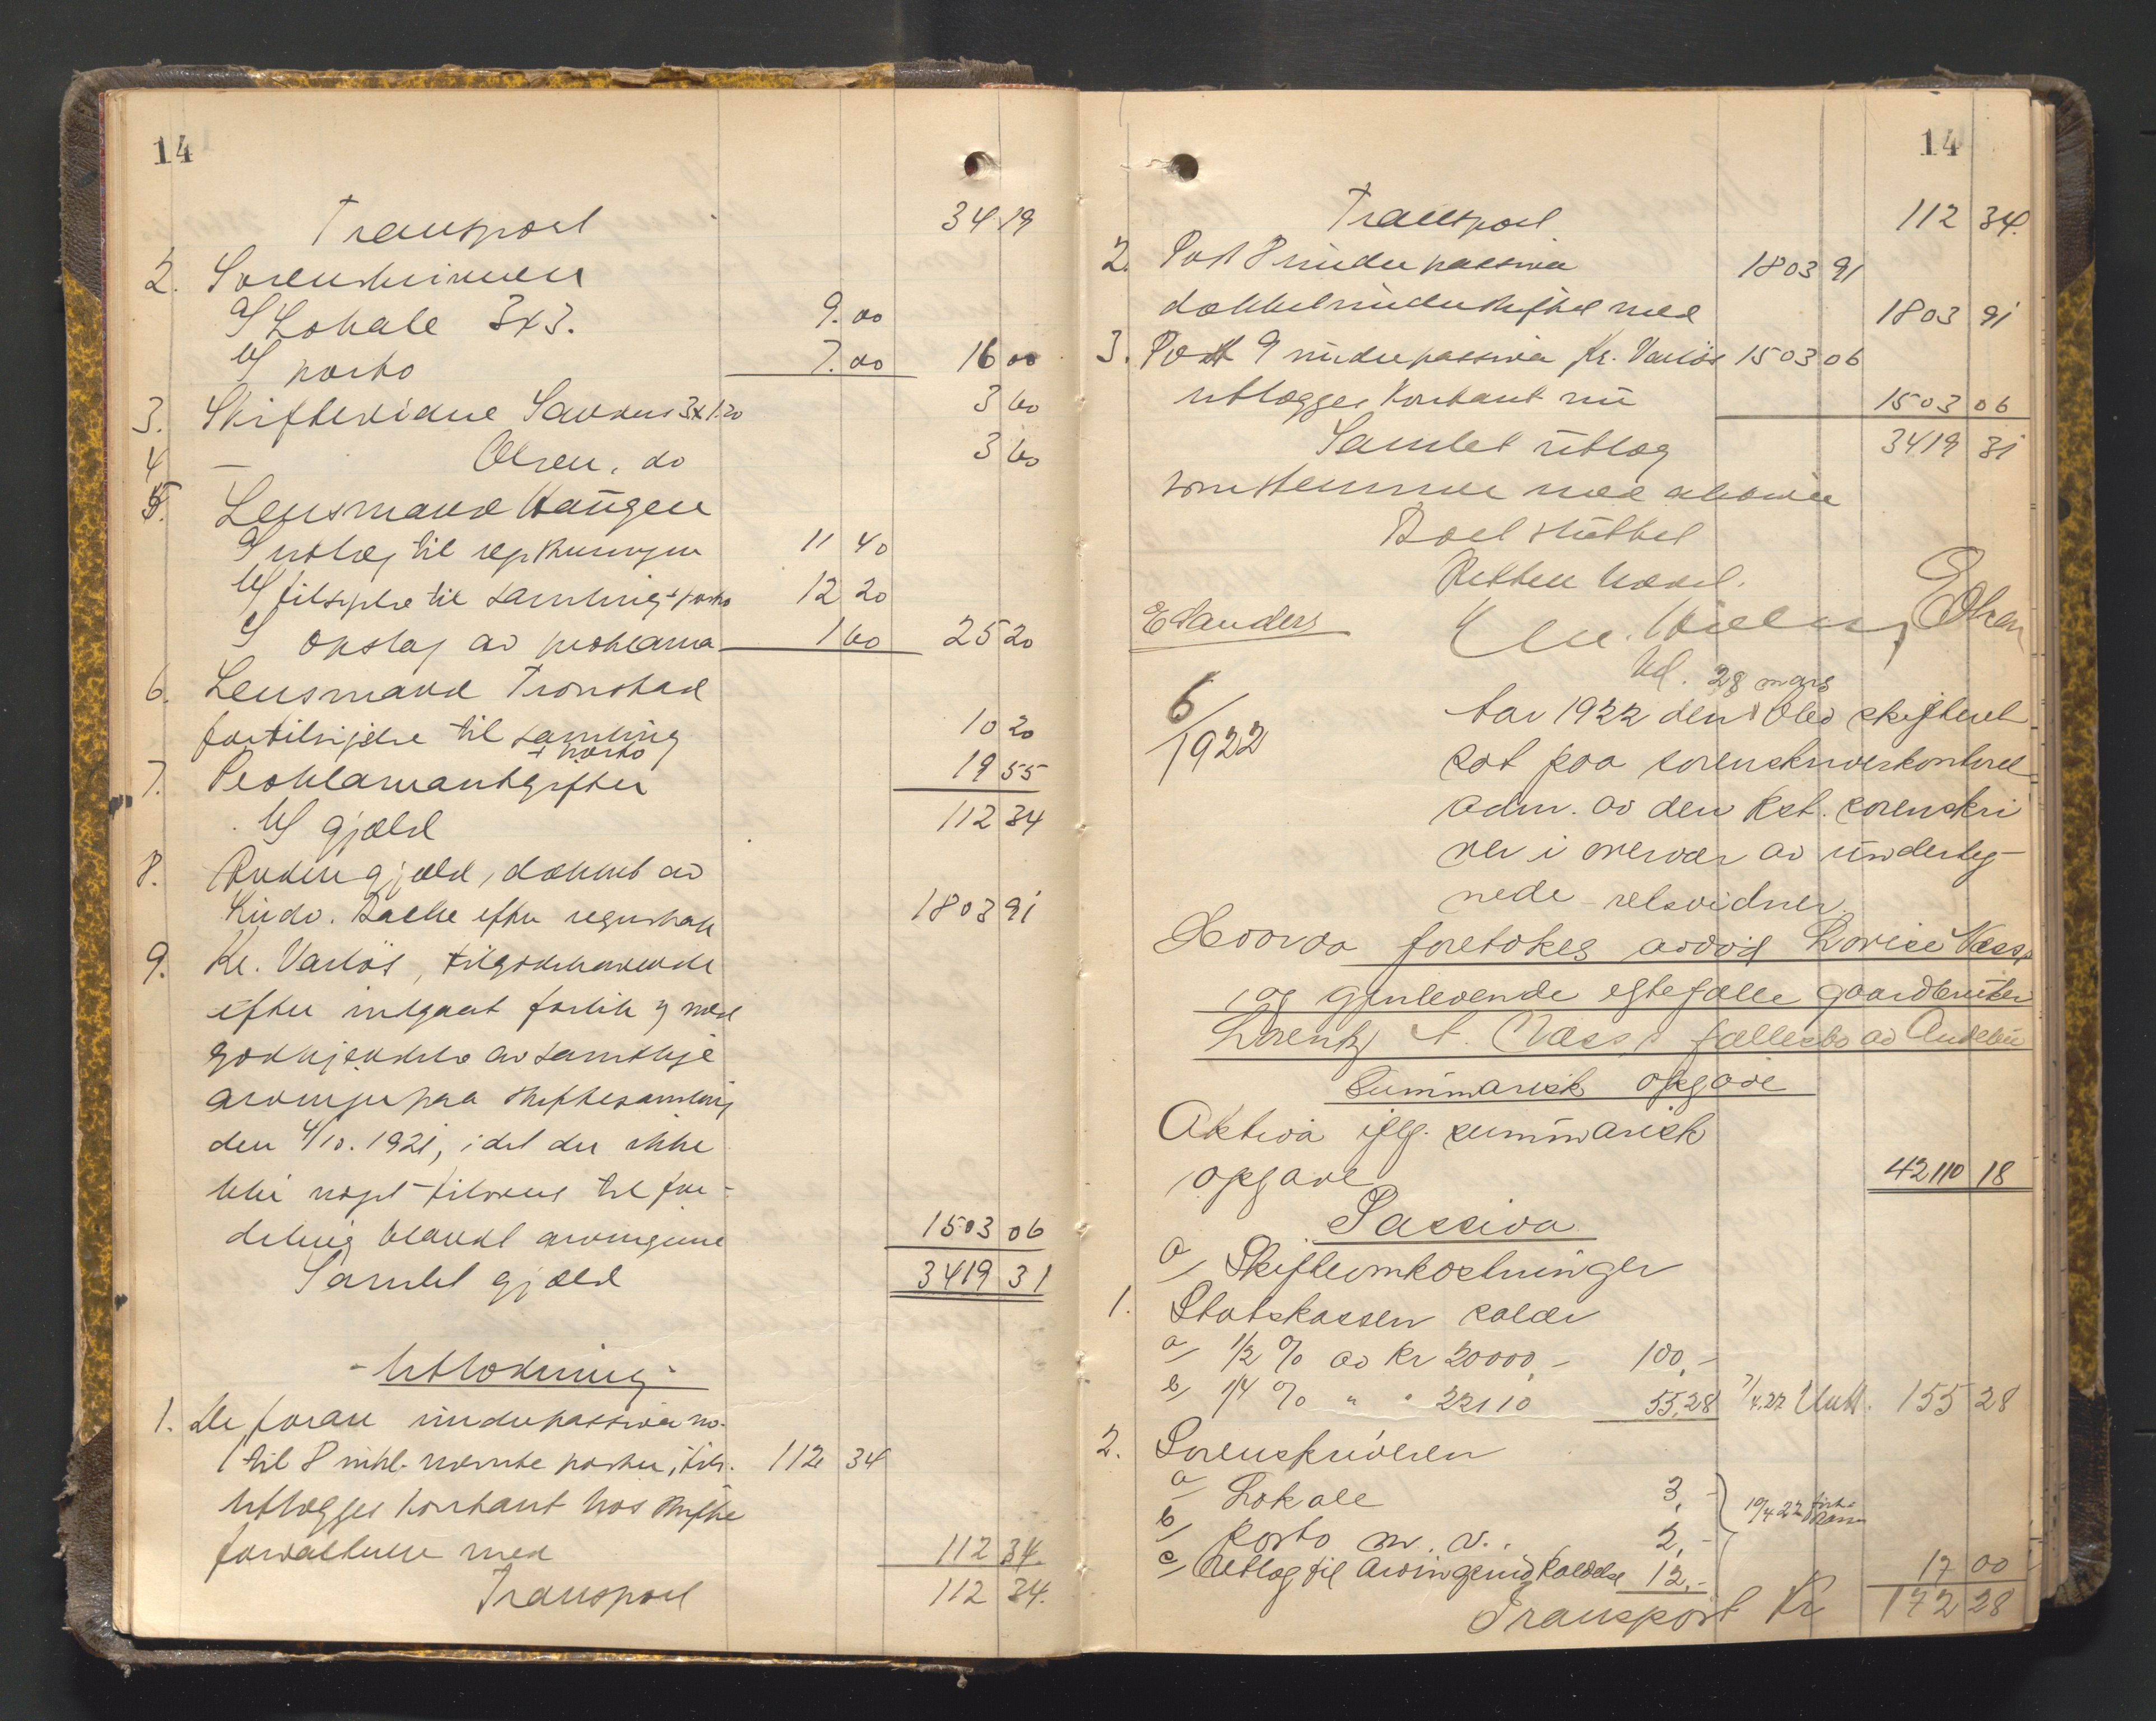 14
Transport 34 19
2. Sorenskriveren
a/ Lokale 3x3. 9.00
b/ porto 7.00 16 00
3. Skiftevidne Sanders 3x1.20 3 60
4 — Olsen, do 3 60
5. Lensmand Haugen
a/ utlæg til 11 40
b/ tilsigelse til samling + porto 12 20
c/ opslag av proklama 1 60 25 20
6. Lensmand Tronstad
for tilsigelse til samling + porto 10 20
7. Proklamautgifter 19 55
b/ gjæld 112 34
8. Anden gjæld, dækket av
Lindv. Bache efter regnskab 1803 91
9. Kr. Varløs, tilgodehavende
efter indgaat forlik og med
godkjendelse av samtlige
arvinger paa skiftesamling
den 4/10. 1921, idet der ikke
blir noget tilovers til for-
deling blandt arvingerne 1503 06
Samlet gjæld 3419 31
- Utlodning -
1. De foran under passiva no.
1 til 8 inkl. nævnte poster, tils. 112 34
utlægges kontant hos skifte
forvalteren med 112 34.
Transport 112 34.
14
Transport 112 34.
2. Post 8 under passiva 1803 91
dækkes med 1803 91
3. Post 9 under passiva Kr. Varløs 1503 06
utlægges kontant nu 1503 06
Samlet utlæg 3419 31
som stemmer med aktiva
Boet sluttet
Retten hævet.
E Sanders E Olsen
6/1922
Aar 1922 den 28 mars blev skifteret
sat paa sorenskriverkontoret
adm. av den kst. sorenskri
ver i overvær av underteg-
nede retsvidner.
Hvorda foretokes avdød Lovise Næss,
og gjenlevende egtefælle gaardbruker
Lorentz A. Næss's fællesbo av Andebu
Summarisk opgave
Aktiva iflg. summarisk
opgave 42110 18
Passiva
a/ Skifteomkostninger
1. Statskassen saldr
a/ 1/2 % av Kr 20000,- 100,-
b/ 1/4 % " " 22110 55,28 7/4.22 Utbt. 155 28
2. Sorenskriveren
a/ Lokale 3,-
b/ Porto m. v. 2,- 10/4 22
c/ Utlæg til arvingerindkaldelse 12,- 17 00
Transport Kr 172 28